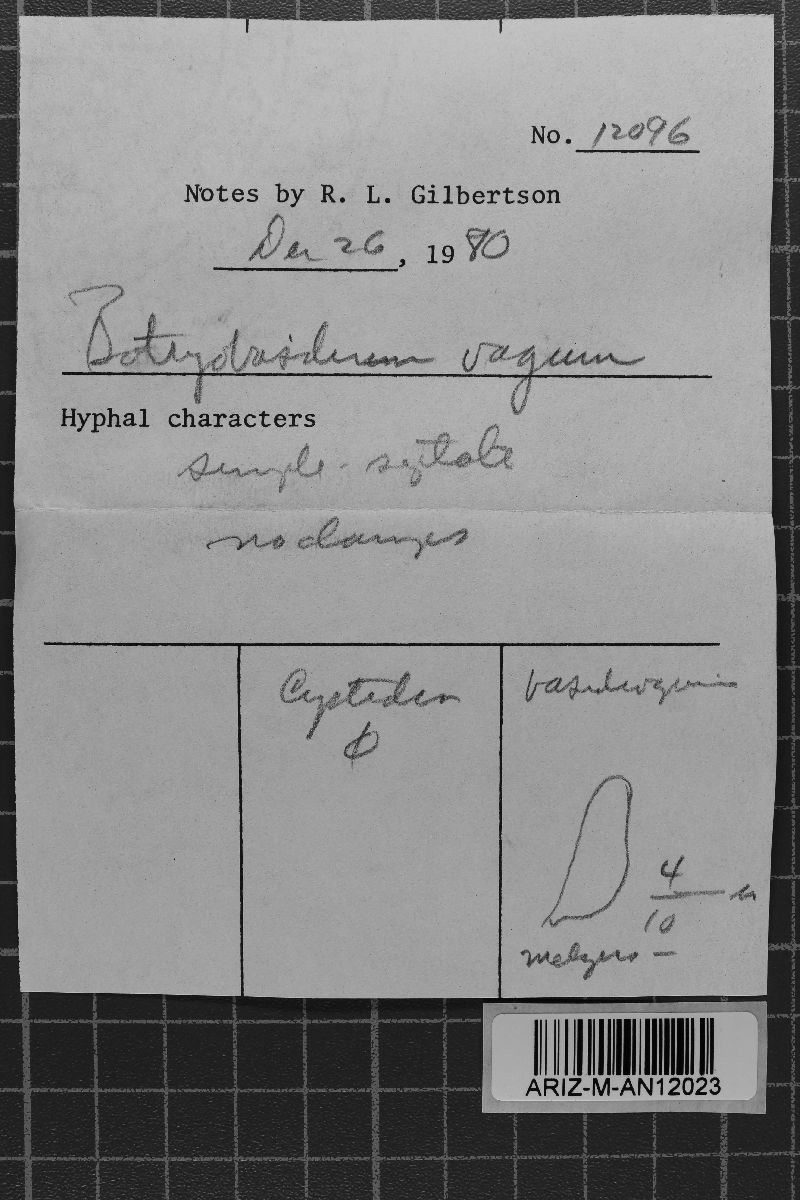 No. 12096
Notes by R. L. Gilbertson
Dec 26, 1980
Botryobasidium vagum
Hyphal characters
simple-septate
no clamps
Cystidia
φ
basidiospores
4
10
melzers –
ARIZ-M-AN12023